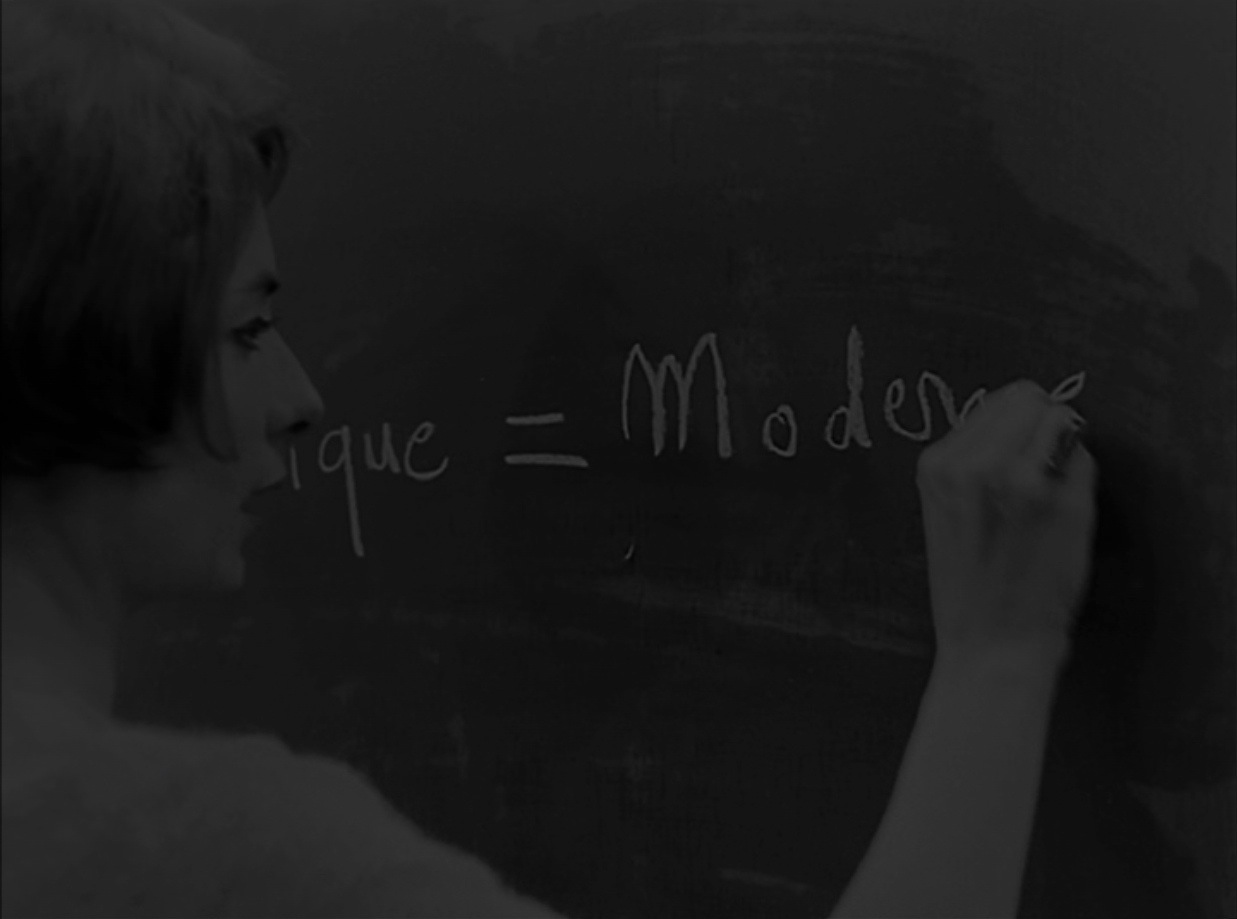 ique = Moderne